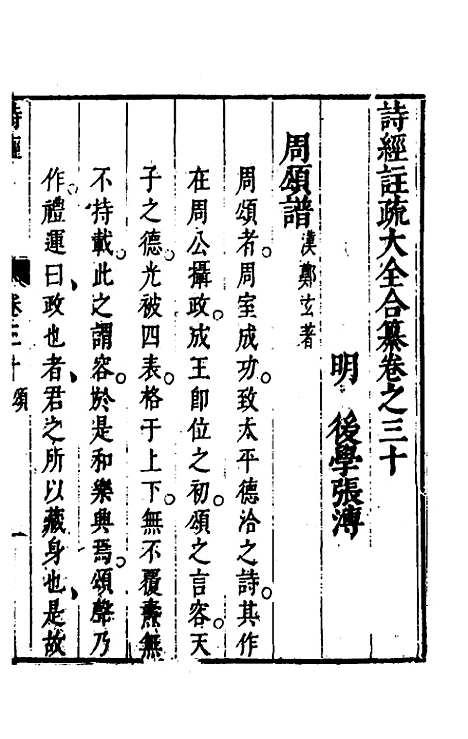 詩經註疏大全合纂卷之三十
明 後學張溥
周頌譜 漢鄭玄著
周頌者周室成功致太平德洽之詩其作
在周公攝政成王卽位之初。頌之言容。天
子之德光被四表。格于上下。無不覆燾無
不持載。此之謂容。於是和樂興焉。頌聲乃
作。禮運曰、政也者、君之所以藏身也、是故
詩經 卷三十 頌 一